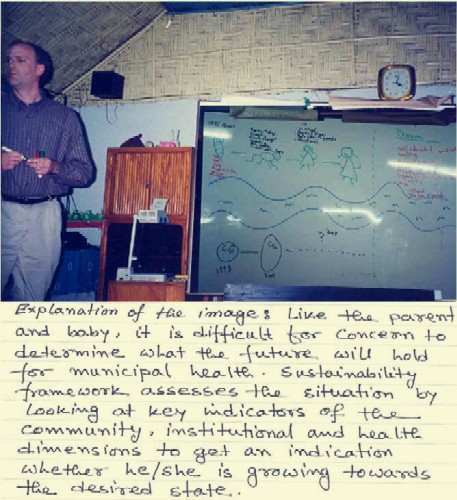 Dream
CG
1998
CG
Explanation of the image: Like the parent
and baby, it is difficult for Concern to
determine what the future will hold
for municipal health. Sustainability
framework assesses the situation by
looking at key indicators of the
community, institutional and health
dimensions to get an indication
whether he/she is growing towards
the desired state.